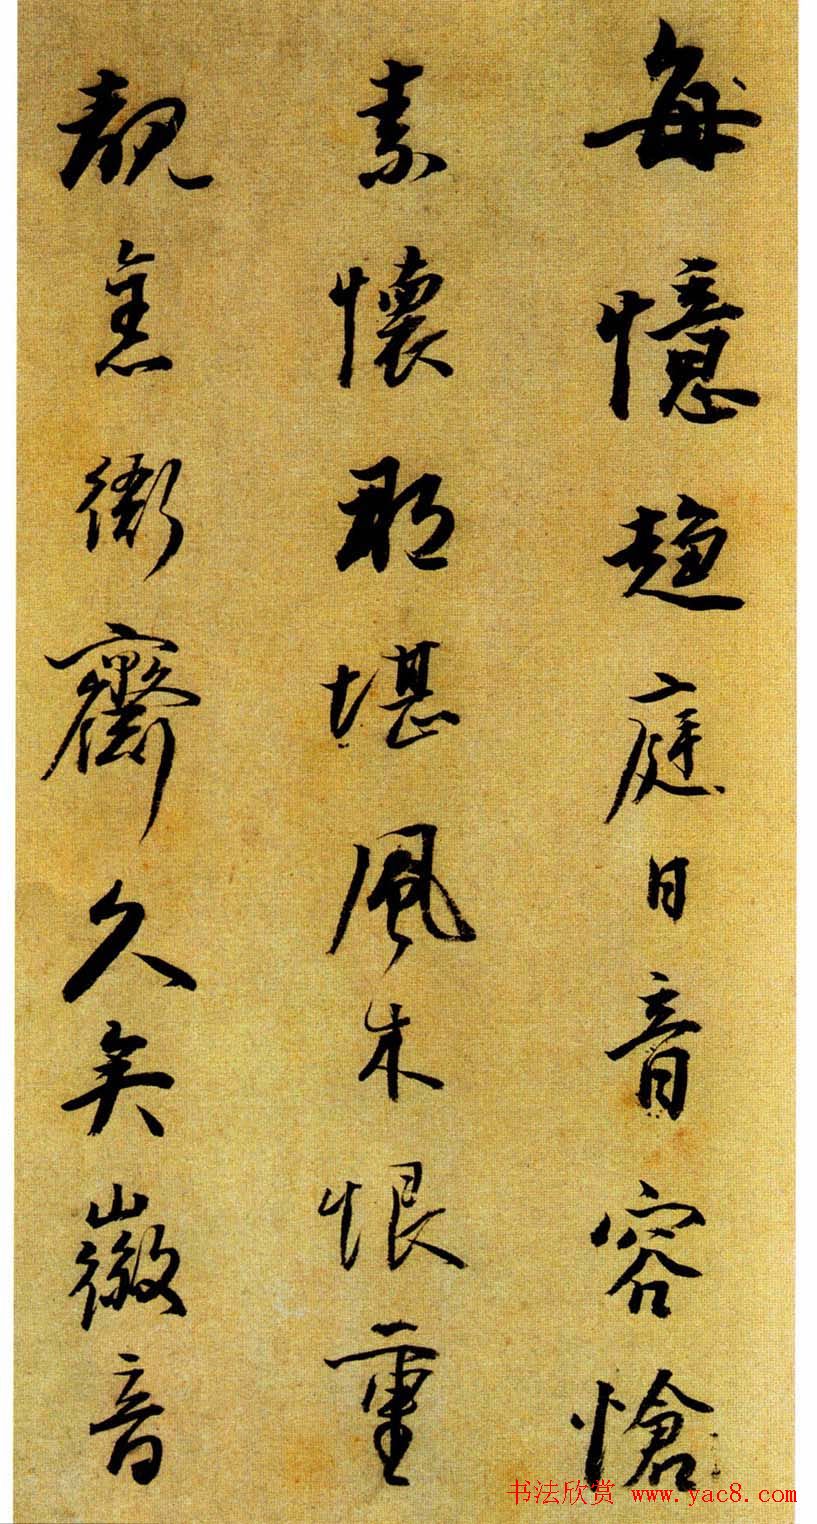 每憶趨庭日音容愴
素懷那堪風木恨重
覩衙齋久矣徽音
书法欣赏 www.yac8.com